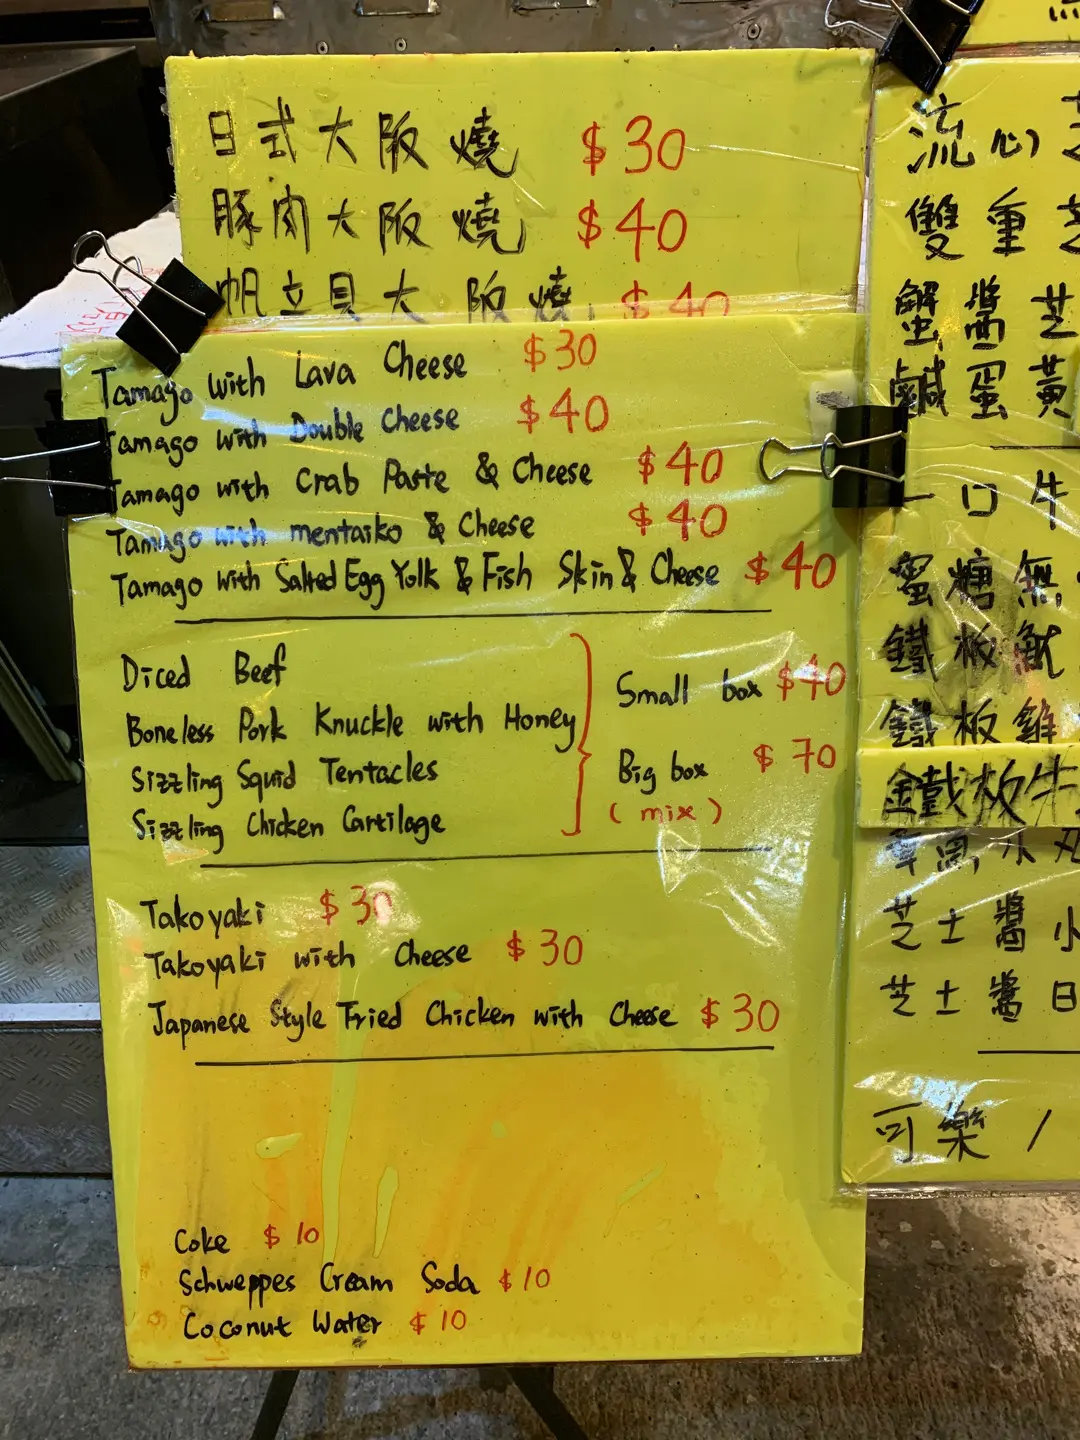 日式大阪燒 $30
豚肉大阪燒 $40
帆立貝大阪燒 $40
Tamago with Lava Cheese $30
Tamago with Double Cheese $40
Tamago with Crab Paste & Cheese $40
Tamago with mentaiko & Cheese $40
Tamago with Salted Egg Yolk & Fish Skin & Cheese $40
Diced Beef
Boneless Pork Knuckle with Honey
Sizzling Squid Tentacles
Sizzling Chicken Cartilage
Small box $40
Big box $70
(mix)
Takoyaki $30
Takoyaki with Cheese $30
Japanese Style Fried Chicken with Cheese $30
Coke $10
Schweppes Cream Soda $10
Coconut Water $10
流心芝
雙重芝
蟹醬芝
鹹蛋黃
一口牛
蜜糖無
鐵板魷
鐵板雞
鐵板牛
章魚小丸
芝士醬小
芝士醬日
可樂 /